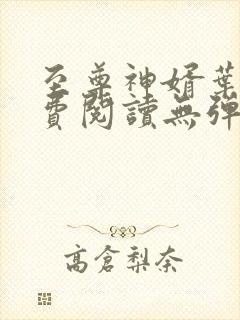 至尊神婿葉
費閱讀無彈
高倉梨奈